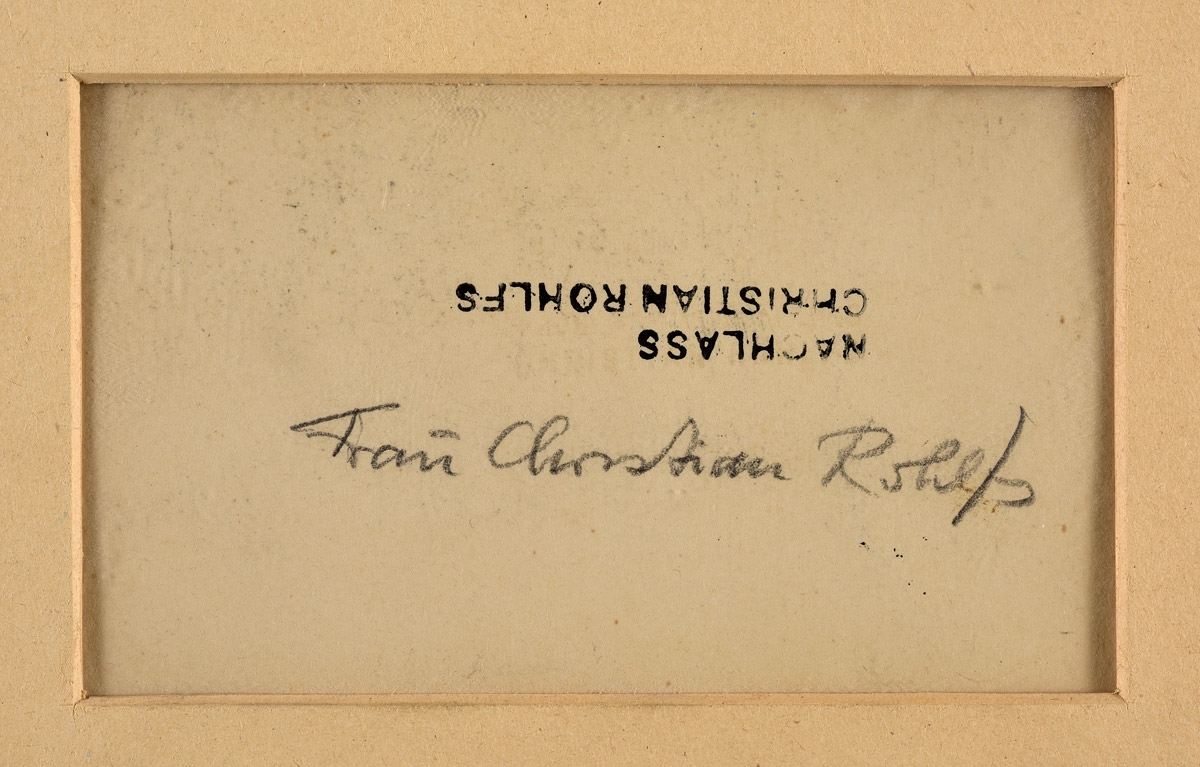 NACHLASS
CHRISTIAN ROHLFS
Frau Christian Rohlfs